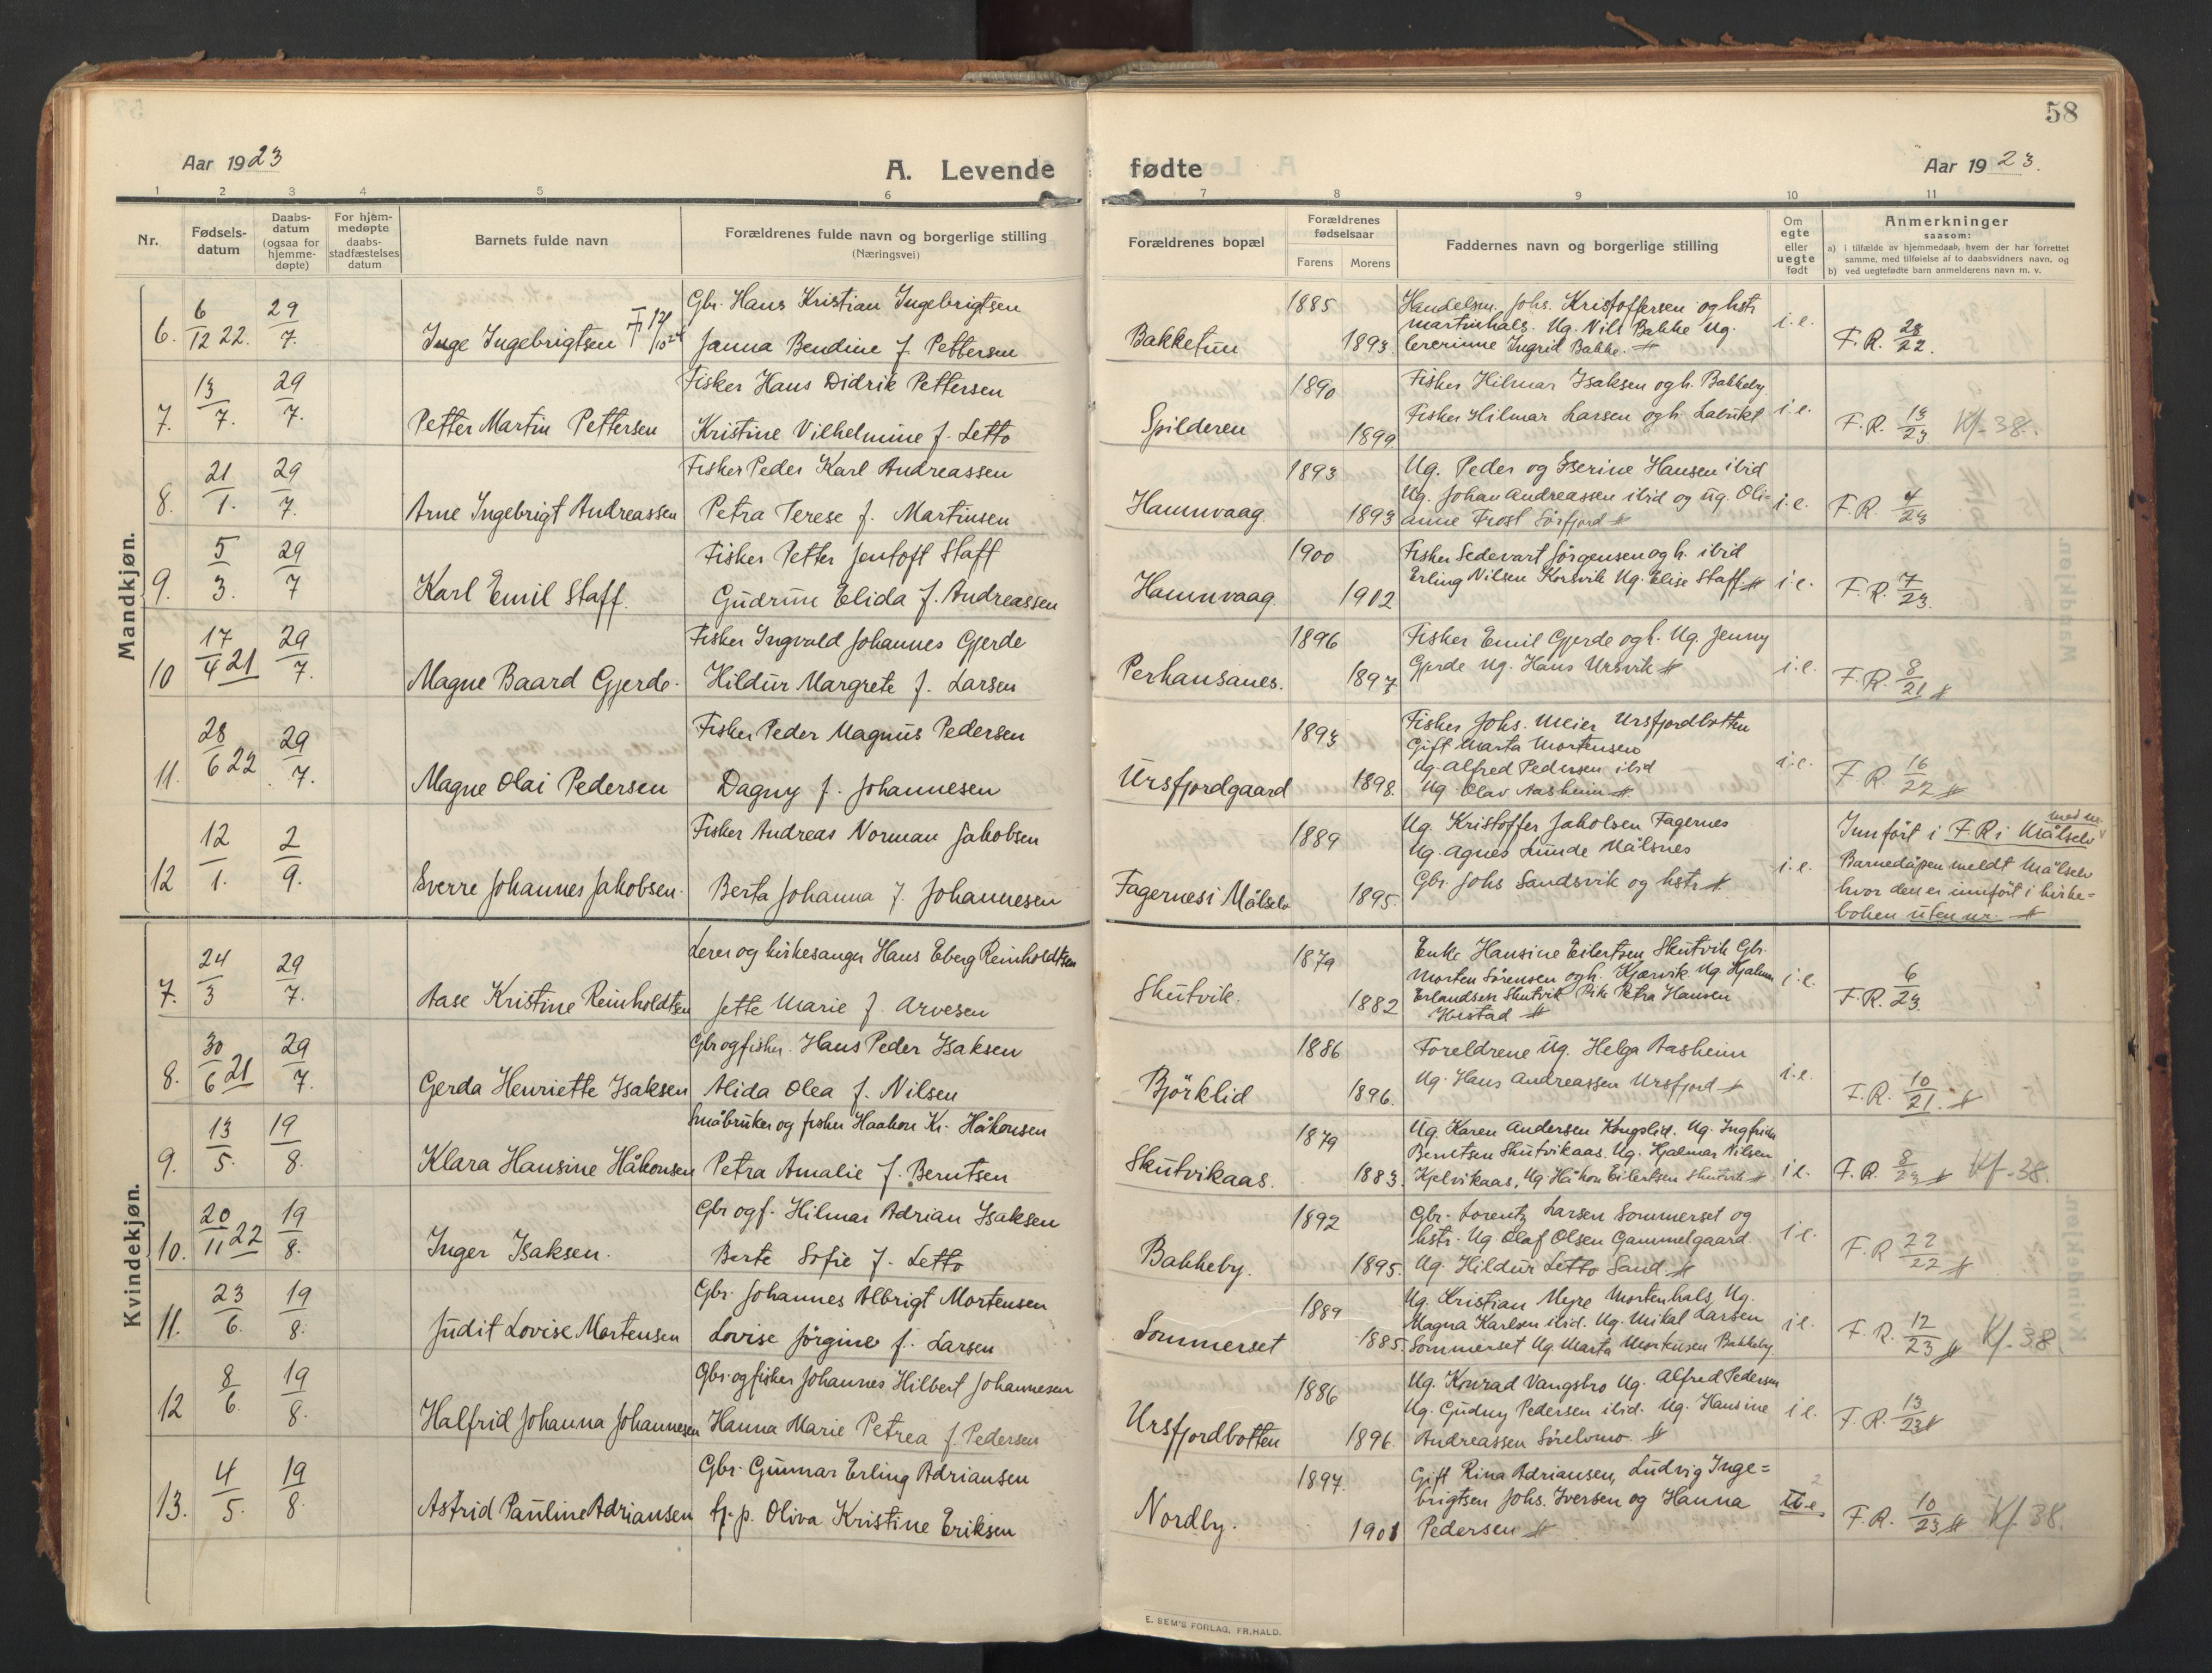 58
Aar 1923
A. Levende
fødte
Aar 1923.
1 2 3 4 5 6 7 8 9 10 11
Nr.
Fødsels-
datum
Daabs-
datum
(ogsaa for
hjemme-
døpte)
For hjem-
medøpte
daabs-
stadfæstelses
datum
Barnets fulde navn
Forældrenes fulde navn og borgerlige stilling
(Næringsvei)
Forældrenes bopæl
Forældrenes
fødselsaar
Farens Morens
Faddernes navn og borgerlige stilling
Om
egte
eller
uegte
født
Anmerkninger
saasom:
a) i tilfælde av hjemmedaab, hvem der har forrettet
samme, med tilføielse af to daabsvidners navn, og
b) ved uegtefødte barn anmelderens navn m. v.
Mandkjøn.
6. 6/12 22. 29/7. Inge Ingebrigtsen
Gbr. Hans Kristian Ingebrigtsen
Janna Bendine f. Pettersen
Bakketun 1885 1893.
Handelsm. Johs. Kristoffersen og hstr
Martinhals. Ug. Nils Bakke Ug.
Lererinne Ingrid Bakke.
i.e. F.R. 28/22.
7. 13/7. 29/7. Petter Martin Pettersen
Fisker Hans Didrik Pettersen
Kristine Vilhelmine f. Letto
Spilderen 1890 1899
Fisker Hilmar Isaksen og h. Bakkeby
Fisker Hilmar Larsen og h. Labukt
i.e. F.R. 13/23 Kf. 38.
8. 21/1. 29/7. Arne Ingebrigt Andreassen
Fisker Peder Karl Andreassen
Petra Terese f. Martinsen
Hamnvaag 1893 1893
Ug. Peder og Serine Hansen ibid
Ug. Johan Andreassen ibid og Ug. Oli-
anne Frost Sørfjord
i.e. F.R. 4/23
9. 5/3. 29/7 Karl Emil Staff.
Fisker Petter Jentoft Staff
Gudrun Elida f. Andreassen
Hamnvaag 1900 1902
Fisker Sedevart Jørgensen og h. ibid
Erling Nilsen Korsvik Ug. Elise Staff
i.e. F.R. 7/23.
10 17/4 21 29/7. Magne Baard Gjerde.
Fisker Ingvald Johannes Gjerde
Hildur Margrete f. Larsen
Perhansanes. 1896 1897
Fisker Emil Gjerde og h. Ug. Jenny
Gjerde Ug. Hans Ursvik
i.e. F.R. 8/21
11. 28/6 22 29/7. Magne Olai Pedersen
Fisker Peder Magnus Pedersen
Dagny f. Johannesen
Ursfjordgaard 1893 1898.
Fisker Johs. Meier Ursfjordbotten
Gift Marta Mortensen
Ug. Alfred Pedersen ibid
Ug. Olav Aasheim
i.e. F.R. 16/22
12 12/1. 2/9. Sverre Johannes Jakobsen.
Fisker Andreas Norman Jakobsen
Berta Johanna f. Johannesen
Fagernes i Målselv 1889 1895.
Ug. Kristoffer Jakobsen Fagernes
Ug. Agnes Lunde Målsnes
Gbr. Johs Sandsvik og hstr
i.e.
Innført i F.R. i Målselv
Barnedåpen meldt Målselv
hvor den er innført i kirke-
boken uten nr.
Kvindekjøn.
7. 24/3 29/7. Aase Kristine Reinholdtsen
Lerer og kirkesanger Hans Eberg Reinholdtsen
Jette Marie f. Arvesen
Skutvik. 1879 1882
Enke Hansine Eilertsen Skutvik Gbr.
Morten Sørensen og h. Kjærvik. Ug. Hjalmar
Erlandsen Skutvik Pike Petra Hansen
i.e. F.R. 6/23.
8. 30/6 21 29/7. Gerda Henriette Isaksen
Gbr og fisker. Hans Peder Isaksen
Alida Olea f. Nilsen
Bjørklid 1886 1896.
Foreldrene Ug. Helga Aasheim
Ug. Hans Andreassen Ursfjord
i.e. F.R. 10/21.
9. 13/5. 19/8. Klara Hansine Håkonsen
Småbruker og fisker Haakon Kr. Håkonsen
Petra Amalie f. Berntsen
Skutvikaas. 1879 1883.
Ug. Karen Andersen Kongslid. Ug. Ingfrida
Berntsen Skutvikaas. Ug. Hjalmar Nilsen
Kjelvikaas, Ug. Håkon Eilertsen Skutvik
i.e. F.R. 8/23 Kf. 38.
10. 20/11 22 19/8. Inger Isaksen.
Gbr og f. Hilmar Adrian Isaksen
Berte Sofie f. Letto
Bakkeby. 1892 1895.
Gbr. Lorentz Larsen Sommerset og
hstr. Ug Olaf Olsen Gammelgaard.
Ug. Hildur Letto Sand
i.e. F.R 22/22
11. 23/6. 19/8. Judit Lovise Mortensen
Gbr. Johannes Albrigt Mortensen
Lovise Jørgine f. Larsen
Sommerset 1889 1885.
Ug. Kristian Myre Mortenhals, Ug.
Magna Karlsen ibid. Ug. Mikal Larsen
Sommerset Ug. Marta Mortensen Bakkeby
i.e. F.R. 12/23 Kf. 38
12 8/6. 19/8. Halfrid Johanna Johannesen
Gbr. og fisker Johannes Hilbert Johannesen
Hanna Marie Petrea f. Pedersen
Ursfjordbotten 1886 1896.
Ug. Konrad Vangsbro Ug. Alfred Pedersen
Ug. Gudny Pedersen ibid. Ug. Hansine
Andreassen Sørelvmo.
i.e. F.R. 13/23
13. 4/5. 19/8. Astrid Pauline Adriansen
Gbr. Gunnar Erling Adriansen
fr. p. Oliva Kristine Eriksen
Nordby. 1897. 1901
Gift Rina Adriansen, Ludvig Inge-
brigtsen Johs. Iversen og Hanna
Pedersen
F.R. 10/23 Kf. 38.
E. SEM'S FORLAG, FR.HALD.